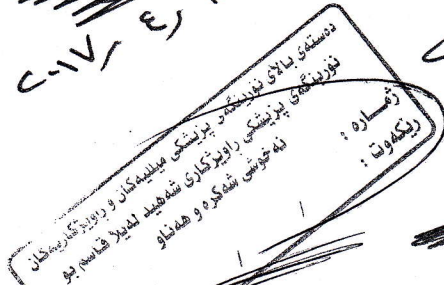 ٢٠١٧/ ٤/
دەستەی بالای نۆرینگەی پزیشکی میللیەکان و راوێژکاریەکان
نۆرینگەی پزیشکی راوێژکاری شەهید لەیلا قاسم بۆ
نەخۆشی شەکرە و هەناو
ژمارە :
ڕێکەوت :